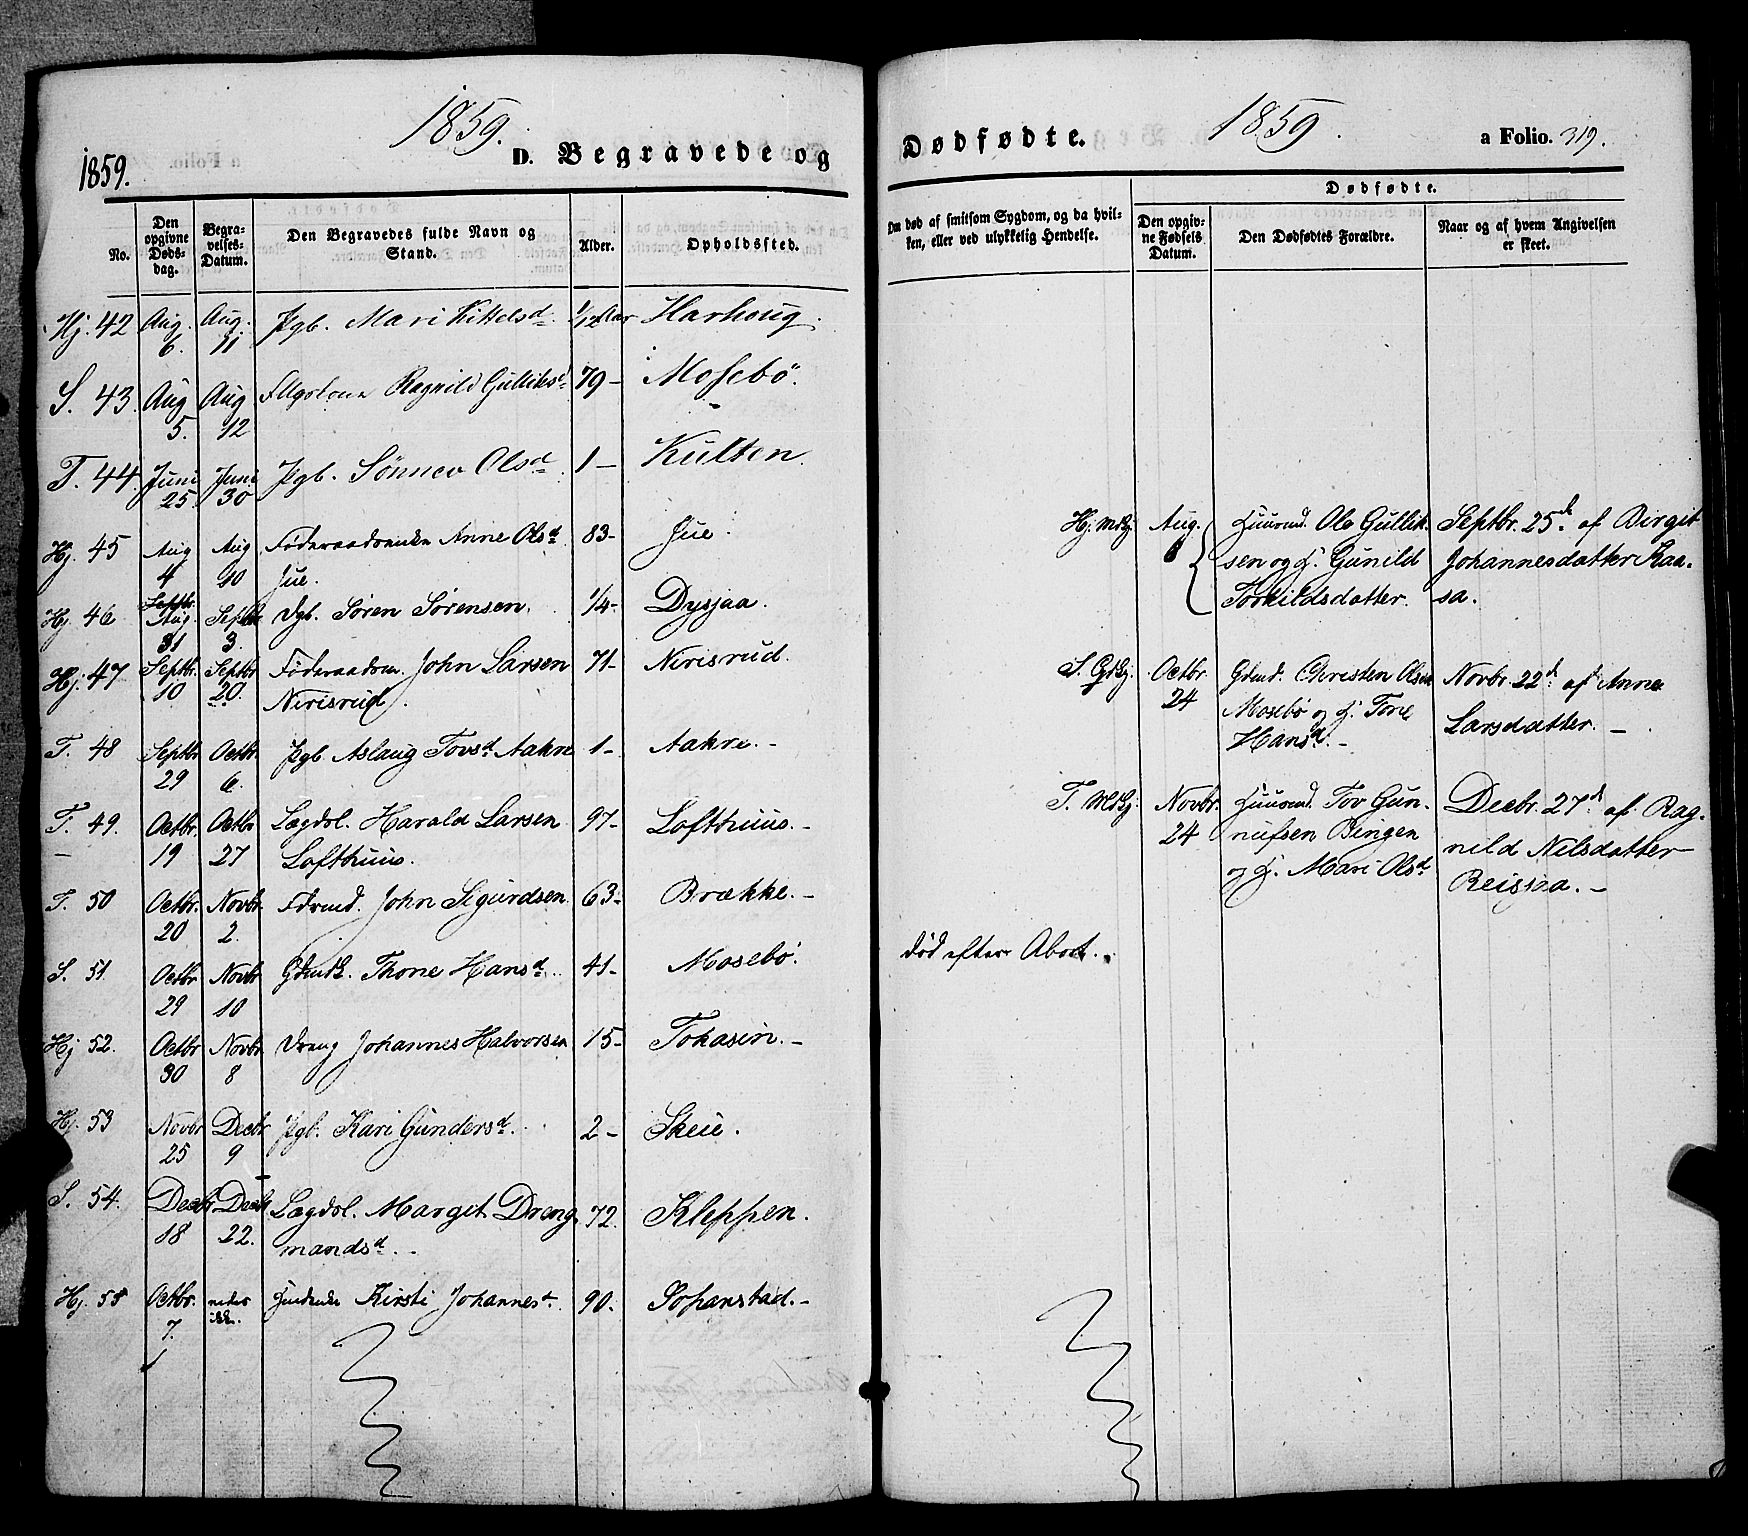 1859.
1859.
D. Begravede og
No.
Den opgivne Døds-dag.
Begra-velses-Datum.
Den Begravedes fulde Navn og Stand.
Alder.
Opholdssted.
Hj. 42 Aug. 6. Aug. 11 Pgb. Mari Kittelsd. 1/12 Aar Harhoug.
S. 43. Aug 5. Aug 12 Ragnild Gulliksd 79 - Mosebö.
T. 44. Juni 25. Juni 30 Pgb. Sönnev Olsd 1 - Kulten.
Hj. 45 Aug 4 Aug 10 Föderaadsenke Anne Olsd 83 - Jue.
Jue.
Hj. 46 Septbr. Aug. 31 Septbr 3. Dgb. Sören Sörensen. 1/4 - Dysjaa.
Hj. 47 Septbr. 10 Septbr 20. Föderaadsm. John Larsen 71 - Nirisrud.
Nirisrud.
T. 48 Septbr 29 Octbr. 6. Pgb. Aslaug Tovsd. Aakre 1 - Aakre. -
T. 49. Octbr. 19 Octbr 27 Lægdsl. Harald Larsen 97 - Lofthuus. -
Lofthuus.
T. 50 Octbr. 20 Novbr. 2. Fdrmd. John Sigurdsen 63 - Brække. -
S. 51. Octbr 29 Novbr 10 Gdmdk. Thone Hansd. 41 - Mosebö.
Hj 52. Octbr 30 Novbr 8 Dreng Johannes Halvorsen 15 - Tohasin. -
Hj. 53 Novbr 25 Decbr 9 Pgb. Kari Gundersd. 2 - Skeie.
S. 54. Decbr 18 Decbr 22. Lægdsl. Marget Dreng 72. Kleppen.
mandsd. -
Hj. 55 Octbr. 7. Kirsti Johannesd. 90.
Dødfødte.
1859.
a Folio. 319.
Om død af smitsom Sygdom, og da hvil-ken, eller ved ulykkelig Hendelse.
Dødfødte.
Den opgiv-ne Fødsels Datum.
Den Dødfødtes Forældre.
Naar og af hvem Angivelsen er skeet.
Hj. Aug. 6 Huusmd. Ole Gullik- Septbr. 25de af Birgit
sen og H. Gunild Johannesdatter Kaa-
Torkildsdatter. sa.
S. Octbr. 24 Gdmd. Christen Olsen Novbr. 22de af Anne
Mosebö og H. Tone Larsdatter. -
Hansd. -
T. Novbr. 24 Huusmd. Tov Gun- Decbr. 27de af Rag-
nufsen Bingen nild Nilsdatter
og H. Mari Olsd. Reisjaa. -
död efter Abort.